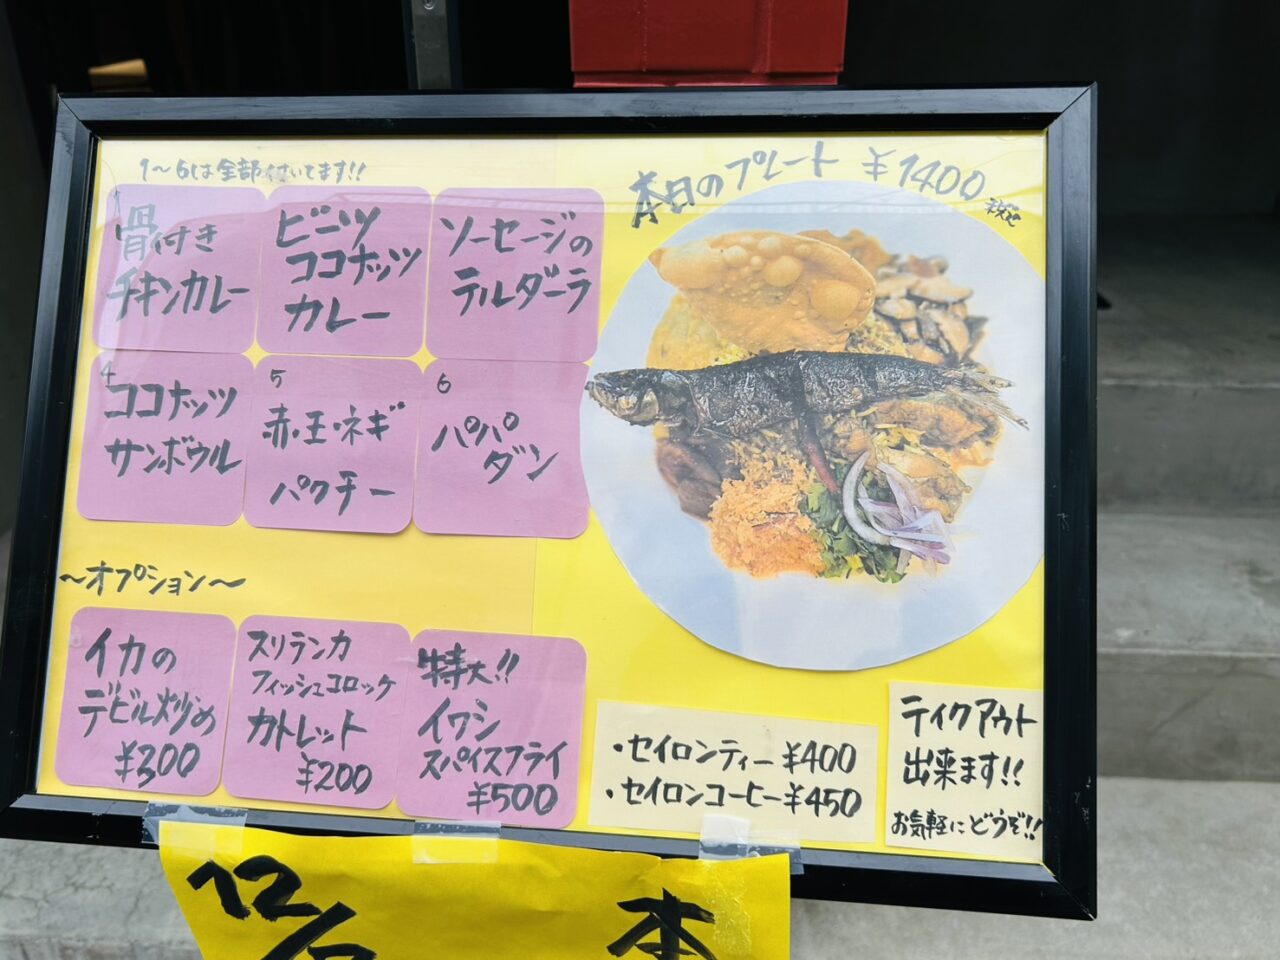 1〜6は全部付いてます!!
本日のプレート ¥1400
税込
骨付き
チキンカレー
ビーツ
ココナッツ
カレー
ソーセージの
テルダーラ
4
ココナッツ
サンボウル
5
赤玉ネギ
パクチー
6
パパ
ダン
〜オプション〜
イカの
デビル炒め
¥300
スリランカ
フィッシュコロッケ
カトレット
¥200
特大!!
イワシ
スパイスフライ
¥500
・セイロンティー ¥400
・セイロンコーヒー ¥450
テイクアウト
出来ます!!
お気軽にどうぞ!!
12/
本